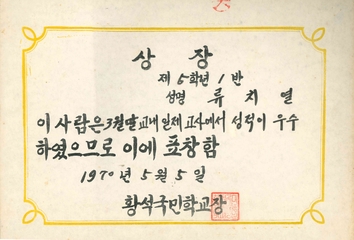 상장
제 5학년 1 반
성명 류치열
이 사람은 3월말 교내 일제고사에서 성적이 우수
하였으므로 이에 표창함
1970년 5월 5일
황석국민학교장